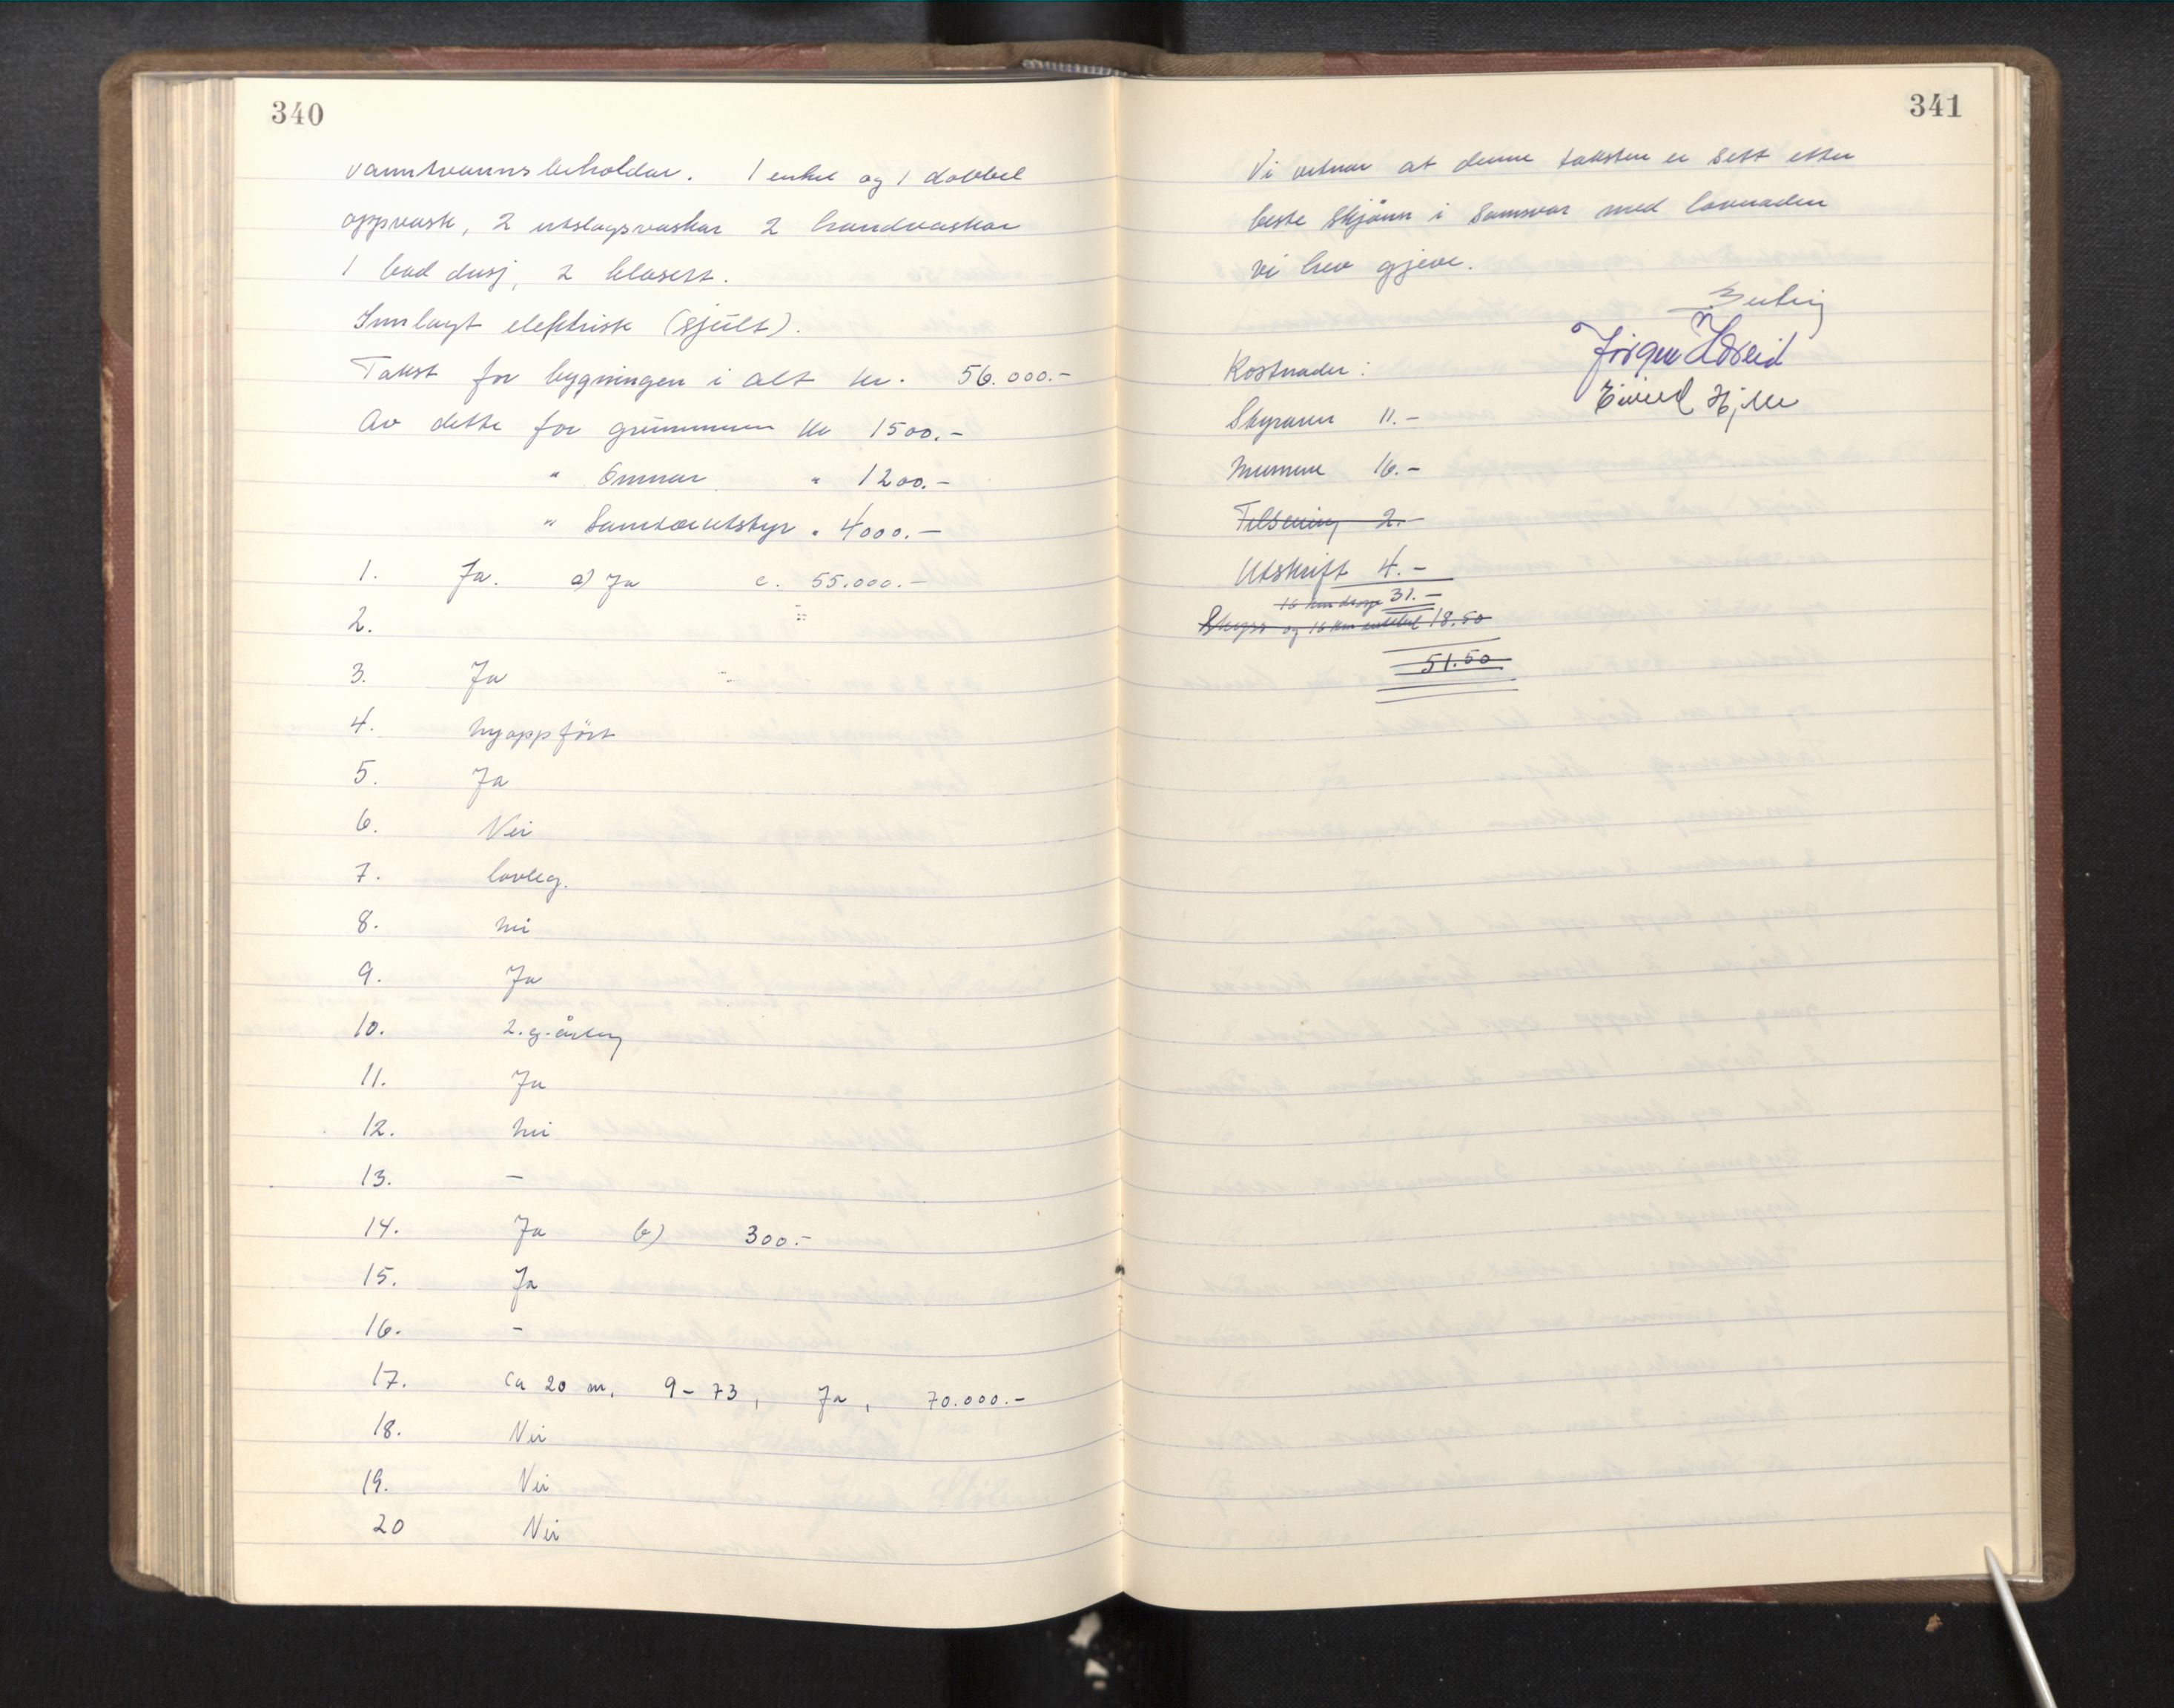 340
varmtvannsbeholdar. 1 enkel og 1 dobbel
oppvask, 2 utslagsvaskar 2 handvaskar
1 bad dusj, 2 klosett.
Innlagt elektrisk (skjult).
Takst for bygningen i alt kr. 56.000.-
Av dette for grunnmuren kr 1500.-
" Omnar " 1200.-
" Sanitærutstyr " 4000.-
1. Ja. a) Ja c. 55.000.-
2.
3. Ja
4. nyoppført
5. Ja
6. Nei
7. lovleg.
8. nei
9. Ja
10. 2.g. årleg
11. Ja
12. nei
13. -
14. Ja b) 300.-
15. Ja
16. -
17. ca 20 m, 9-73, Ja, 70.000.-
18. Nei
19. Nei
20 Nei
341
Vi vitnar at denne taksten er sett etter
beste skjönn i samsvar med lovnaden
vi hev gjeve.
Jörgen
Eivind Hjelle
Kostnader:
Styraren 11.-
Mennene 16.-
Tilsening 2.-
Utskrift 4.-
16 km drosje 31.-
Skyss og 16 km 18.50
51.50